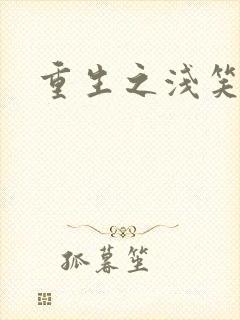 重生之浅笑
孤暮笙